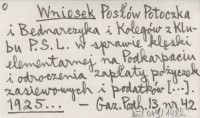 Wniosek Posłów Potoczka
i Bednarczyka i Kolegów z Klu-
bu P.S.L. w sprawie klęski
elementarnej na Podkarpaciu
i odroczenia zapłaty pożyczek
zasiewowych i podatków [...].
1925... – Gaz. Podh. 13 nr 42